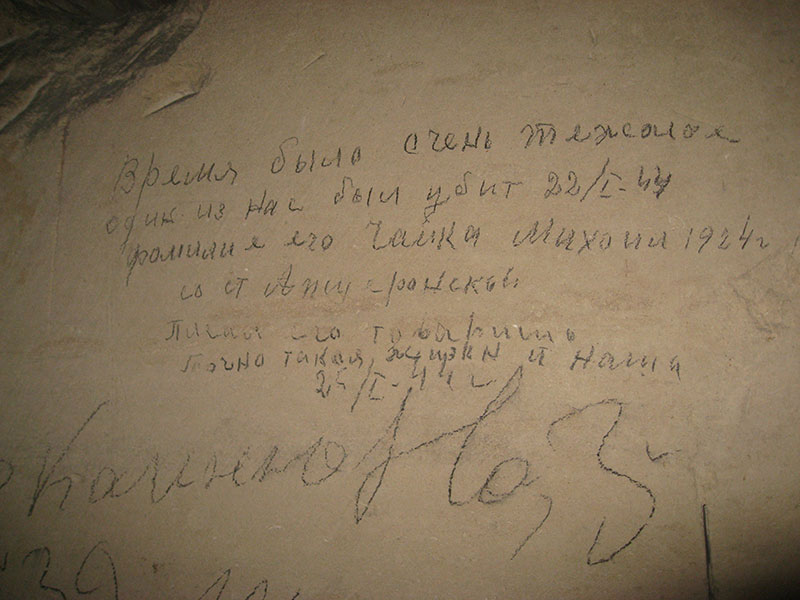 Время было очень тяжолое
один из нас был убит 22/I-44
фамилие его Чайка Михоил 1924 г
со ст Апшеронской
писал его товарищь
Точно такая жизнь и наша
/I-44 г